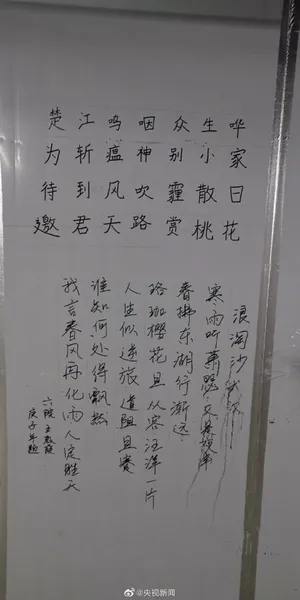 楚江呜咽众生哗
为斩瘟神别小家
待到风吹霾散日
邀君天路赏桃花
浪淘沙
寒雨听萧瑟 又是
春拂东湖行渐远
珞珈樱花且从容汪洋一片
人生似逆旅道阻且
谁知何处得飘
我言春风再化雨人定胜天
六院 王
庚子年题
@央视新闻